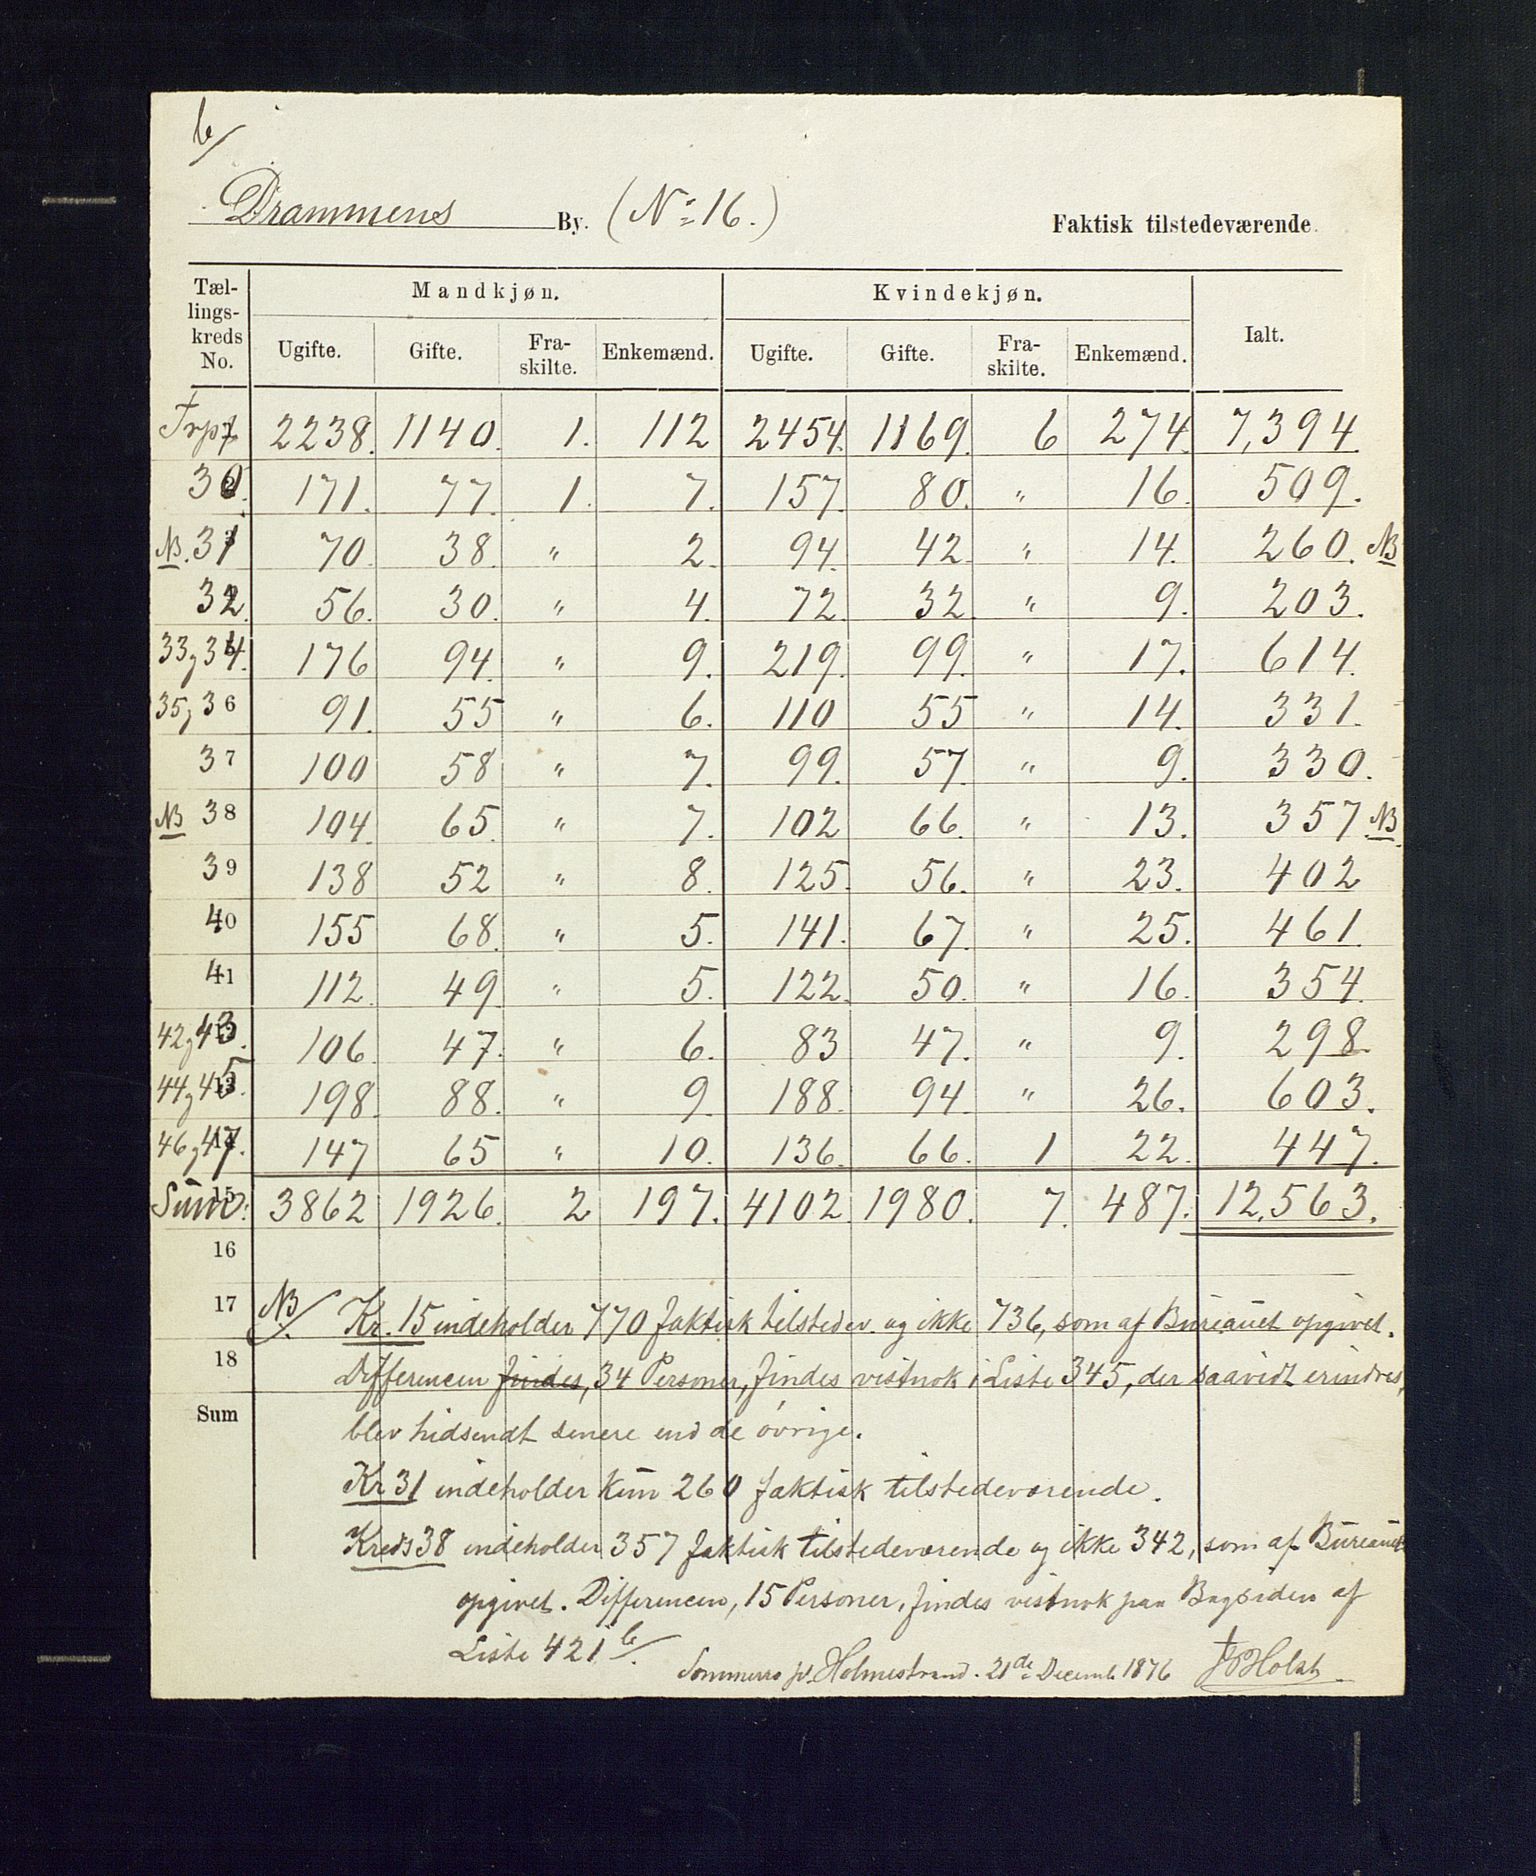 b/
Drammens By. (No 16.) Faktisk tilstedeværende.
Tæl-lings-kreds No. Mandkjøn. Kvindekjøn. Ialt.
Ugifte. Gifte. Fra-skilte. Enkemænd. Ugifte. Gifte. Fra-skilte. Enkemænd.
Trpt 2238. 1140. 1. 112 2454. 1169. 6 274. 7,394.
30. 171. 77. 1. 7. 157. 80. " 16. 509.
NB. 31 70. 38. " 2. 94. 42. " 14. 260. NB
32. 56. 30. " 4. 72. 32. " 9. 203.
33 g 34. 176 94. " 9. 219. 99. " 17. 614.
35 g 36 91. 55 " 6. 110 55 " 14. 331.
37 100 58 " 7. 99. 57. " 9. 330.
NB 38 104. 65. " 7. 102 66. " 13. 357. NB.
39 138 52 " 8. 125. 56. " 23. 402
40 155 68. " 5. 141. 67. " 25. 461.
41 112. 49. " 5. 122. 50. " 16. 354.
42 g 43. 106. 47. " 6. 83 47. " 9. 298.
44 g 45. 198. 88. " 9. 188. 94. " 26. 603.
46 g 47. 147 65 " 10. 136. 66. 1 22. 447.
15 Sum: 3862 1926. 2 197. 4102. 1980. 7. 487. 12,563.
16
17 NB/. Kr. 15 indeholder 770 faktisk tilstedev. og ikke 736, som af Bureauet opgivet.
18 Differencen findes, 34 Personer, findes vistnok i Liste 345, der saavidt erindres,
Sum blev hidsendt senere end de øvrige.
Kr 31 indeholder kun 260 faktisk tilstedeværende.
Kreds 38 indeholder 357 faktisk tilstedeværende og ikke 342, som af Bureauet
opgivet. Differencen, 15 Personer, findes vistnok paa Bagsiden af
Liste 421 b/.
Sommerro pr. Holmestrand. 21de Decemb 1876 Holst